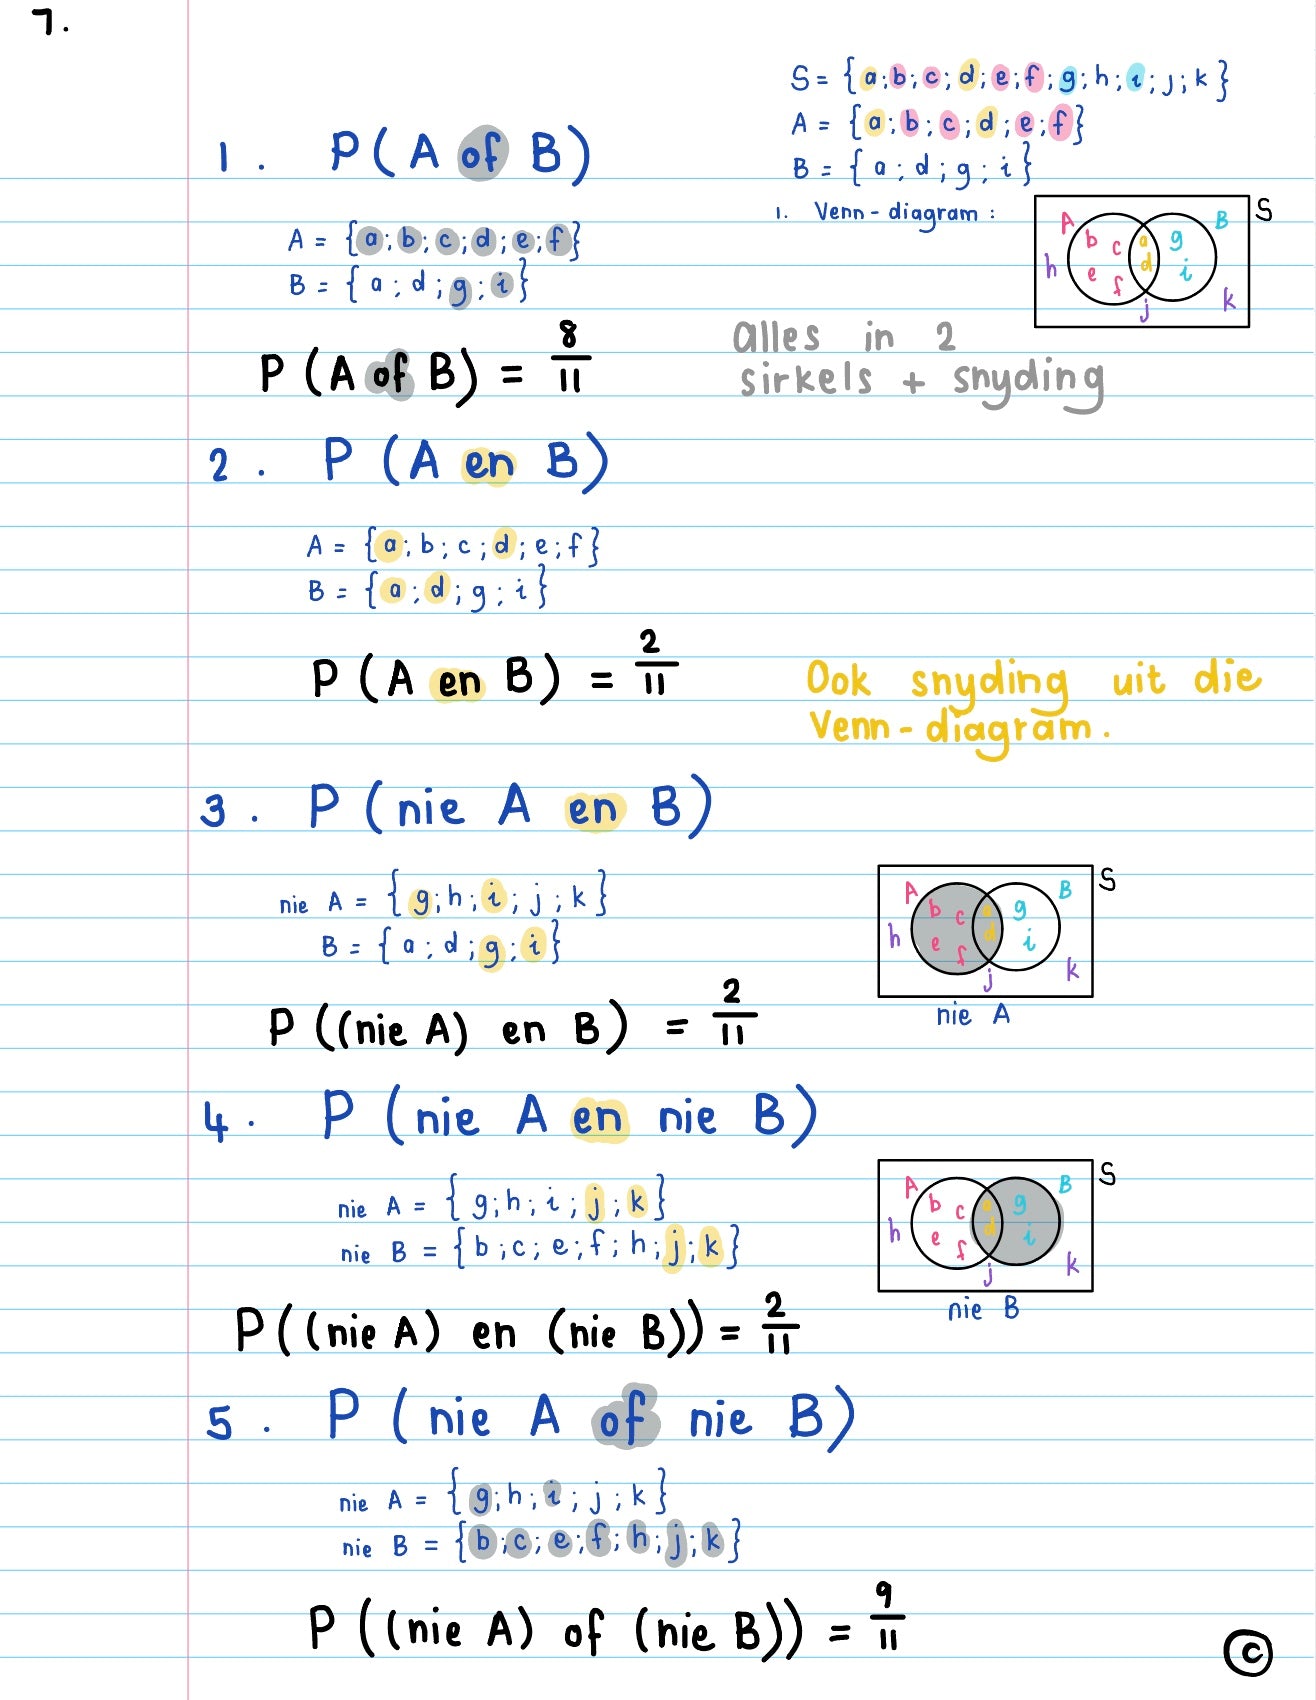 7.
S = {a;b;c;d;e;f;g;h;i;j;k}
A = {a;b;c;d;e;f}
B = {a;d;g;i}
1. Venn-diagram:
S
A
B
b
c
a
g
h
e
f
d
i
j
k
1. P(A of B)
A = {a;b;c;d;e;f}
B = {a;d;g;i}
P(A of B) = 8/11
alles in 2
sirkels + snyding
2. P(A en B)
A = {a;b;c;d;e;f}
B = {a;d;g;i}
P(A en B) = 2/11
Ook snyding uit die
Venn-diagram.
3. P(nie A en B)
nie A = {g;h;i;j;k}
B = {a;d;g;i}
P((nie A) en B) = 2/11
S
A
B
b
c
a
g
h
e
f
d
i
j
k
nie A
4. P(nie A en nie B)
nie A = {g;h;i;j;k}
nie B = {b;c;e;f;h;j;k}
P((nie A) en (nie B)) = 2/11
S
A
B
b
c
a
g
h
e
f
d
i
j
k
nie B
5. P(nie A of nie B)
nie A = {g;h;i;j;k}
nie B = {b;c;e;f;h;j;k}
P((nie A) of (nie B)) = 9/11
©